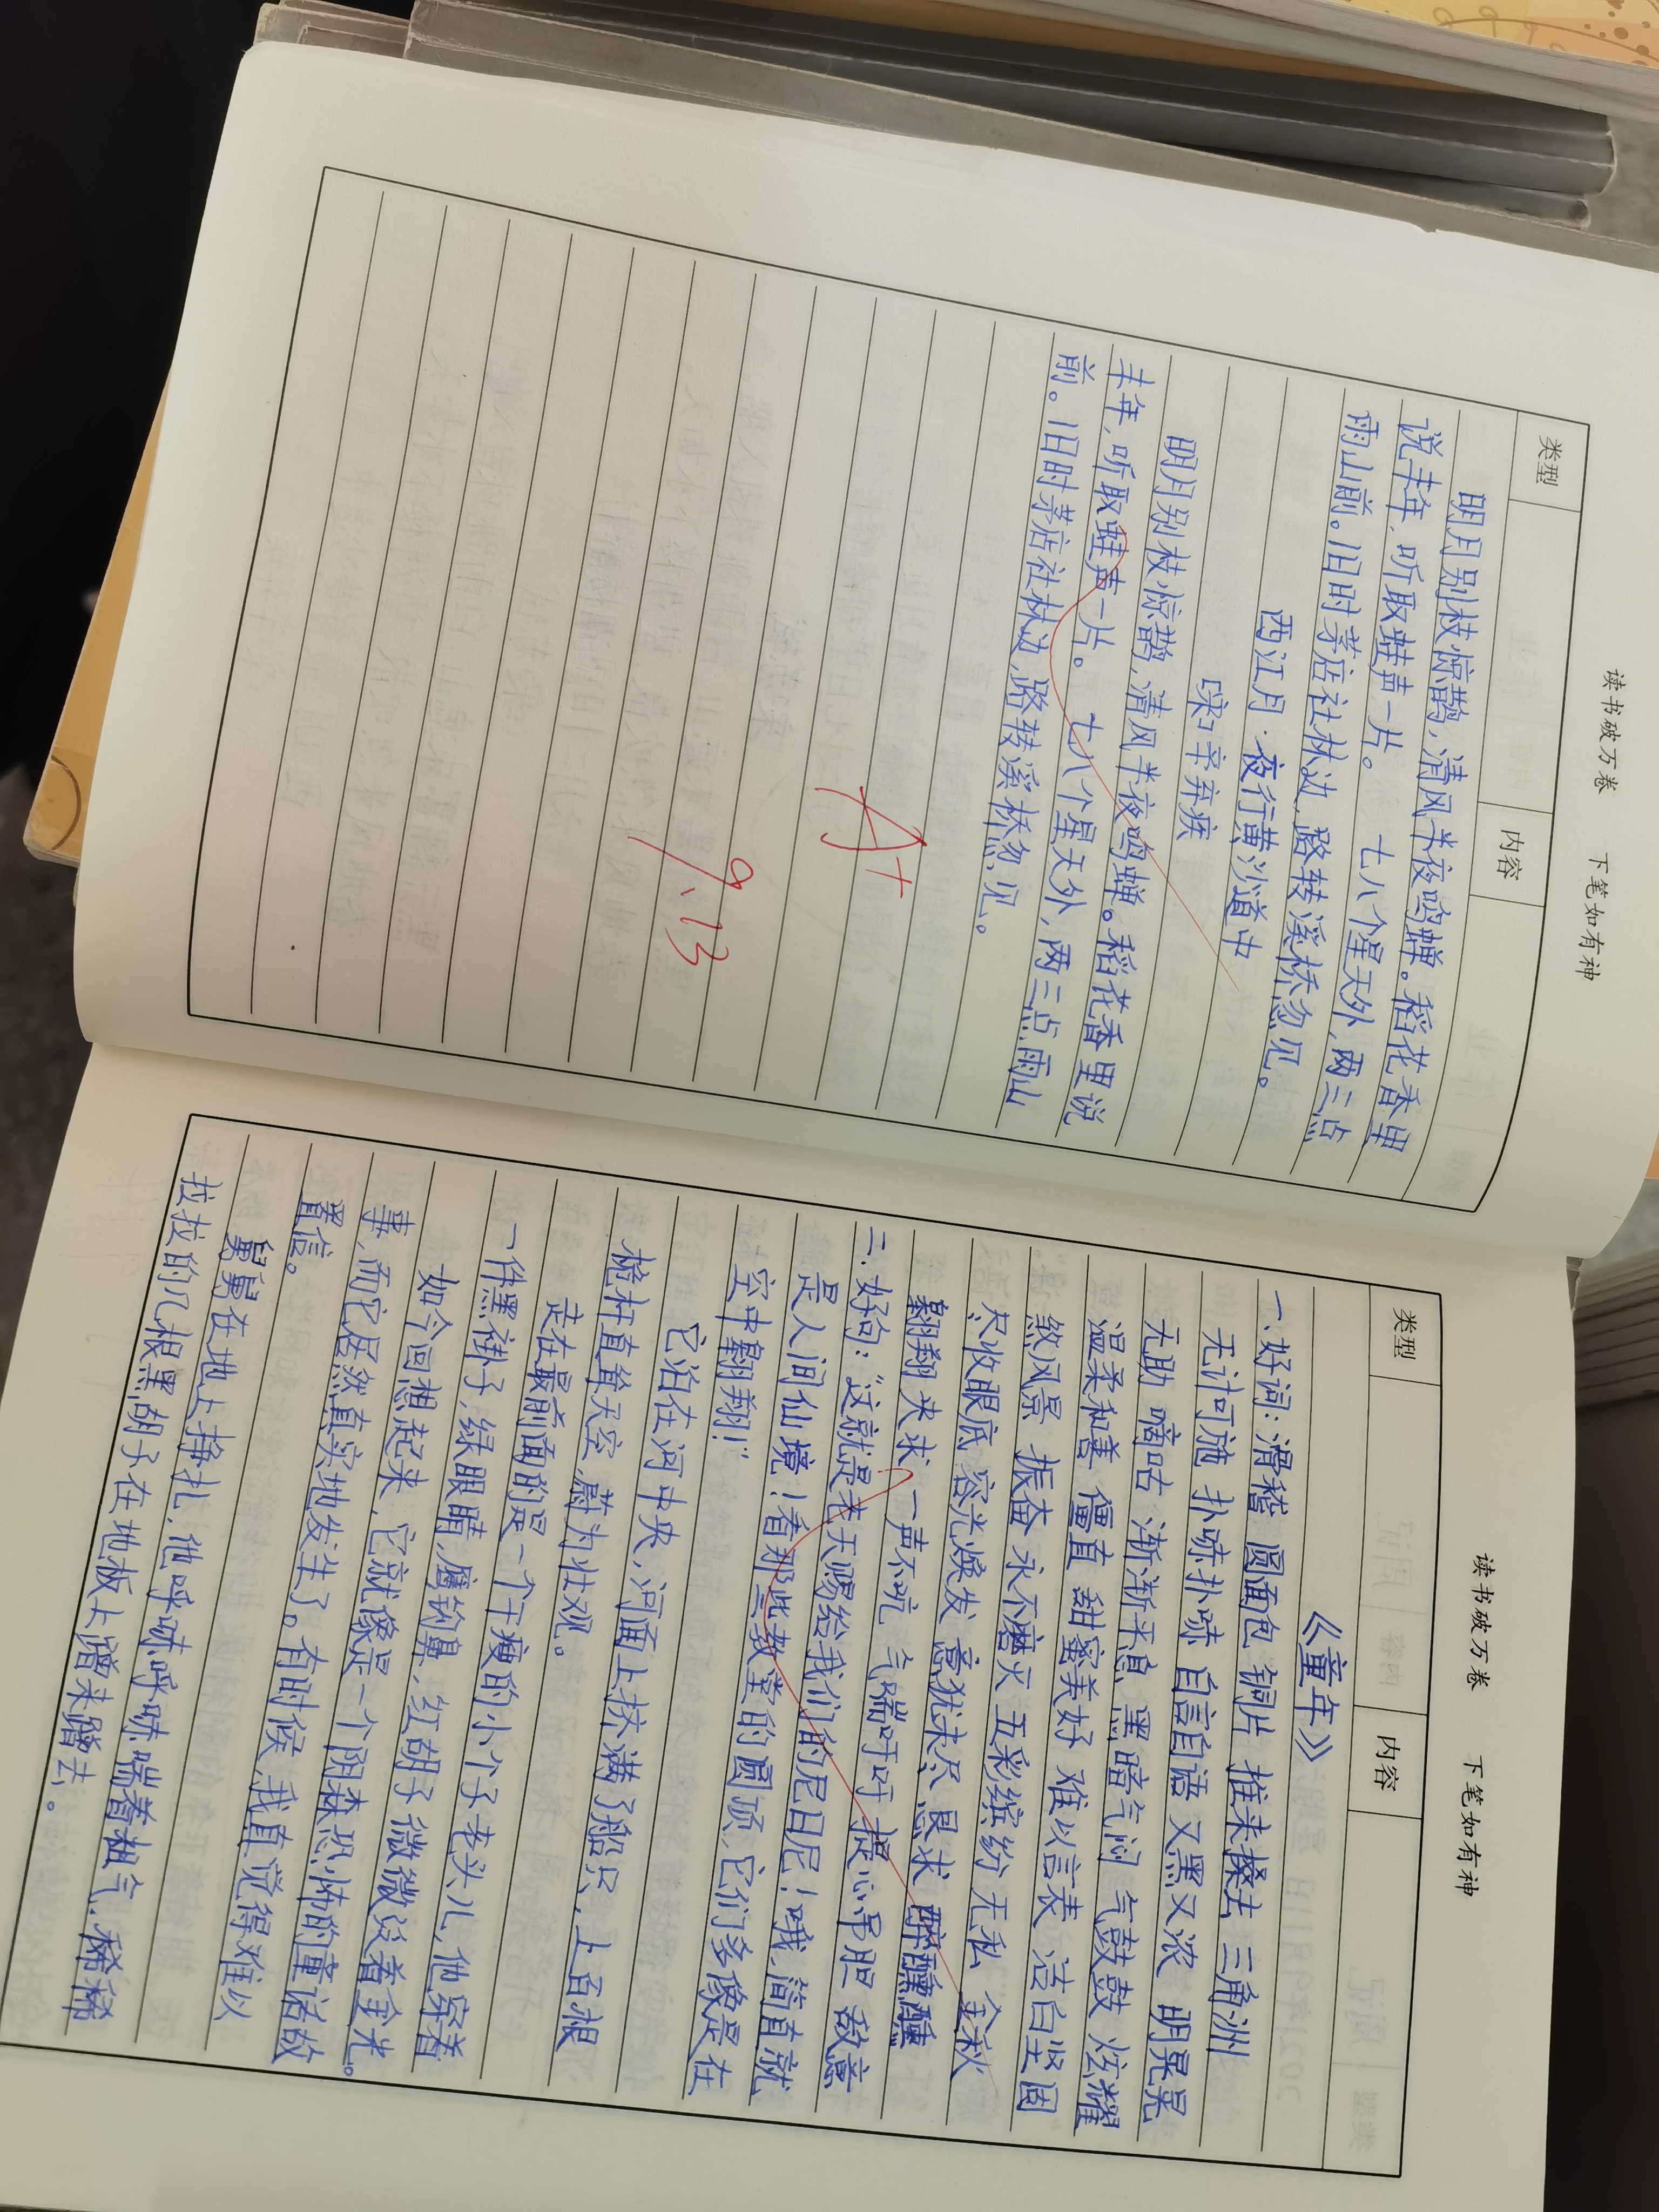 读书破万卷 下笔如有神
类型 内容
明月别枝惊鹊,清风半夜鸣蝉。稻花香里
说丰年,听取蛙声一片。 七八个星天外,两三点
雨山前。旧时茅店社林边,路转溪桥忽见。
西江月·夜行黄沙道中
[宋]辛弃疾
明月别枝惊鹊,清风半夜鸣蝉。稻花香里说
丰年,听取蛙声一片。 七八个星天外,两三点雨山
前。旧时茅店社林边,路转溪桥忽见。
A+
9.13
读书破万卷 下笔如有神
类型 内容
《童年》
一.好词:滑稽 圆面包 铜片 推来搡去 三角洲
无计可施 扑哧扑哧 自言自语 又黑又浓 明晃晃
无助 嘀咕 渐渐平息 黑暗气闷 气鼓鼓 炫耀
温柔和善 僵直 甜蜜美好 难以言表 洁白坚固
煞风景 振奋 永不磨灭 五彩缤纷 无私 金秋
尽收眼底 容光焕发 意犹未尽 恳求 醉醺醺
翱翔 央求 一声不吭 气喘吁吁 提心吊胆 敌意
二.好句:“这就是老天赐给我们的尼日尼!哦,简直就
是人间仙境!看那些教堂的圆顶,它们多像是在
空中翱翔!”
它泊在河中央,河面上挤满了船只,上百根
桅杆直耸天空,蔚为壮观。
走在最前面的是一个干瘦的小个子老头儿,他穿着
一件黑褂子,绿眼睛,鹰钩鼻,红胡子微微泛着金光。
如今回想起来,它就像是一个阴森恐怖的童话故
事,而它居然真实地发生了。有时候,我直觉得难以
置信。
舅舅在地上挣扎,他呼哧呼哧喘着粗气,稀稀
拉拉的几根黑胡子在地板上蹭来蹭去。